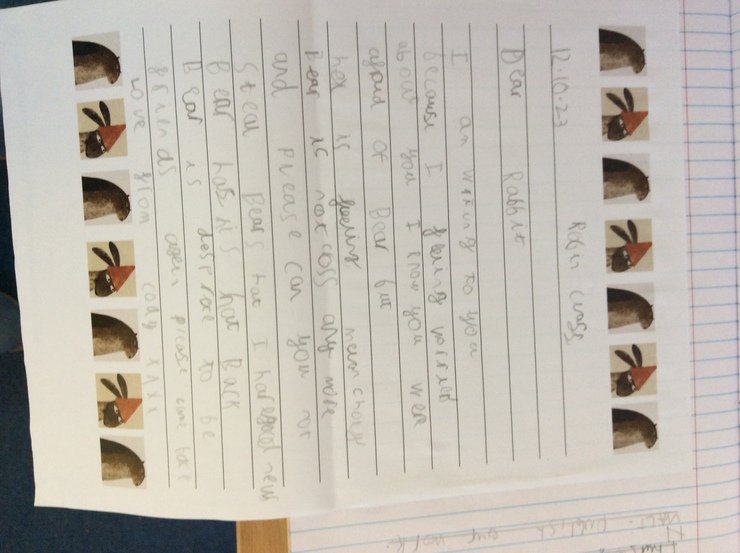 12.10.23
Robin Class
Dear Rabbit
I am writing to you
because I feeling worried
about you I know you were
afraid of Bear but
hes is feeling
Bear is not coss any more
and please can you not
steal Bears hat I have good news
Bear has his hat Back
Bear is desprate to be
friends agen please come back
love from cody x x x x
WALT: publish our work.